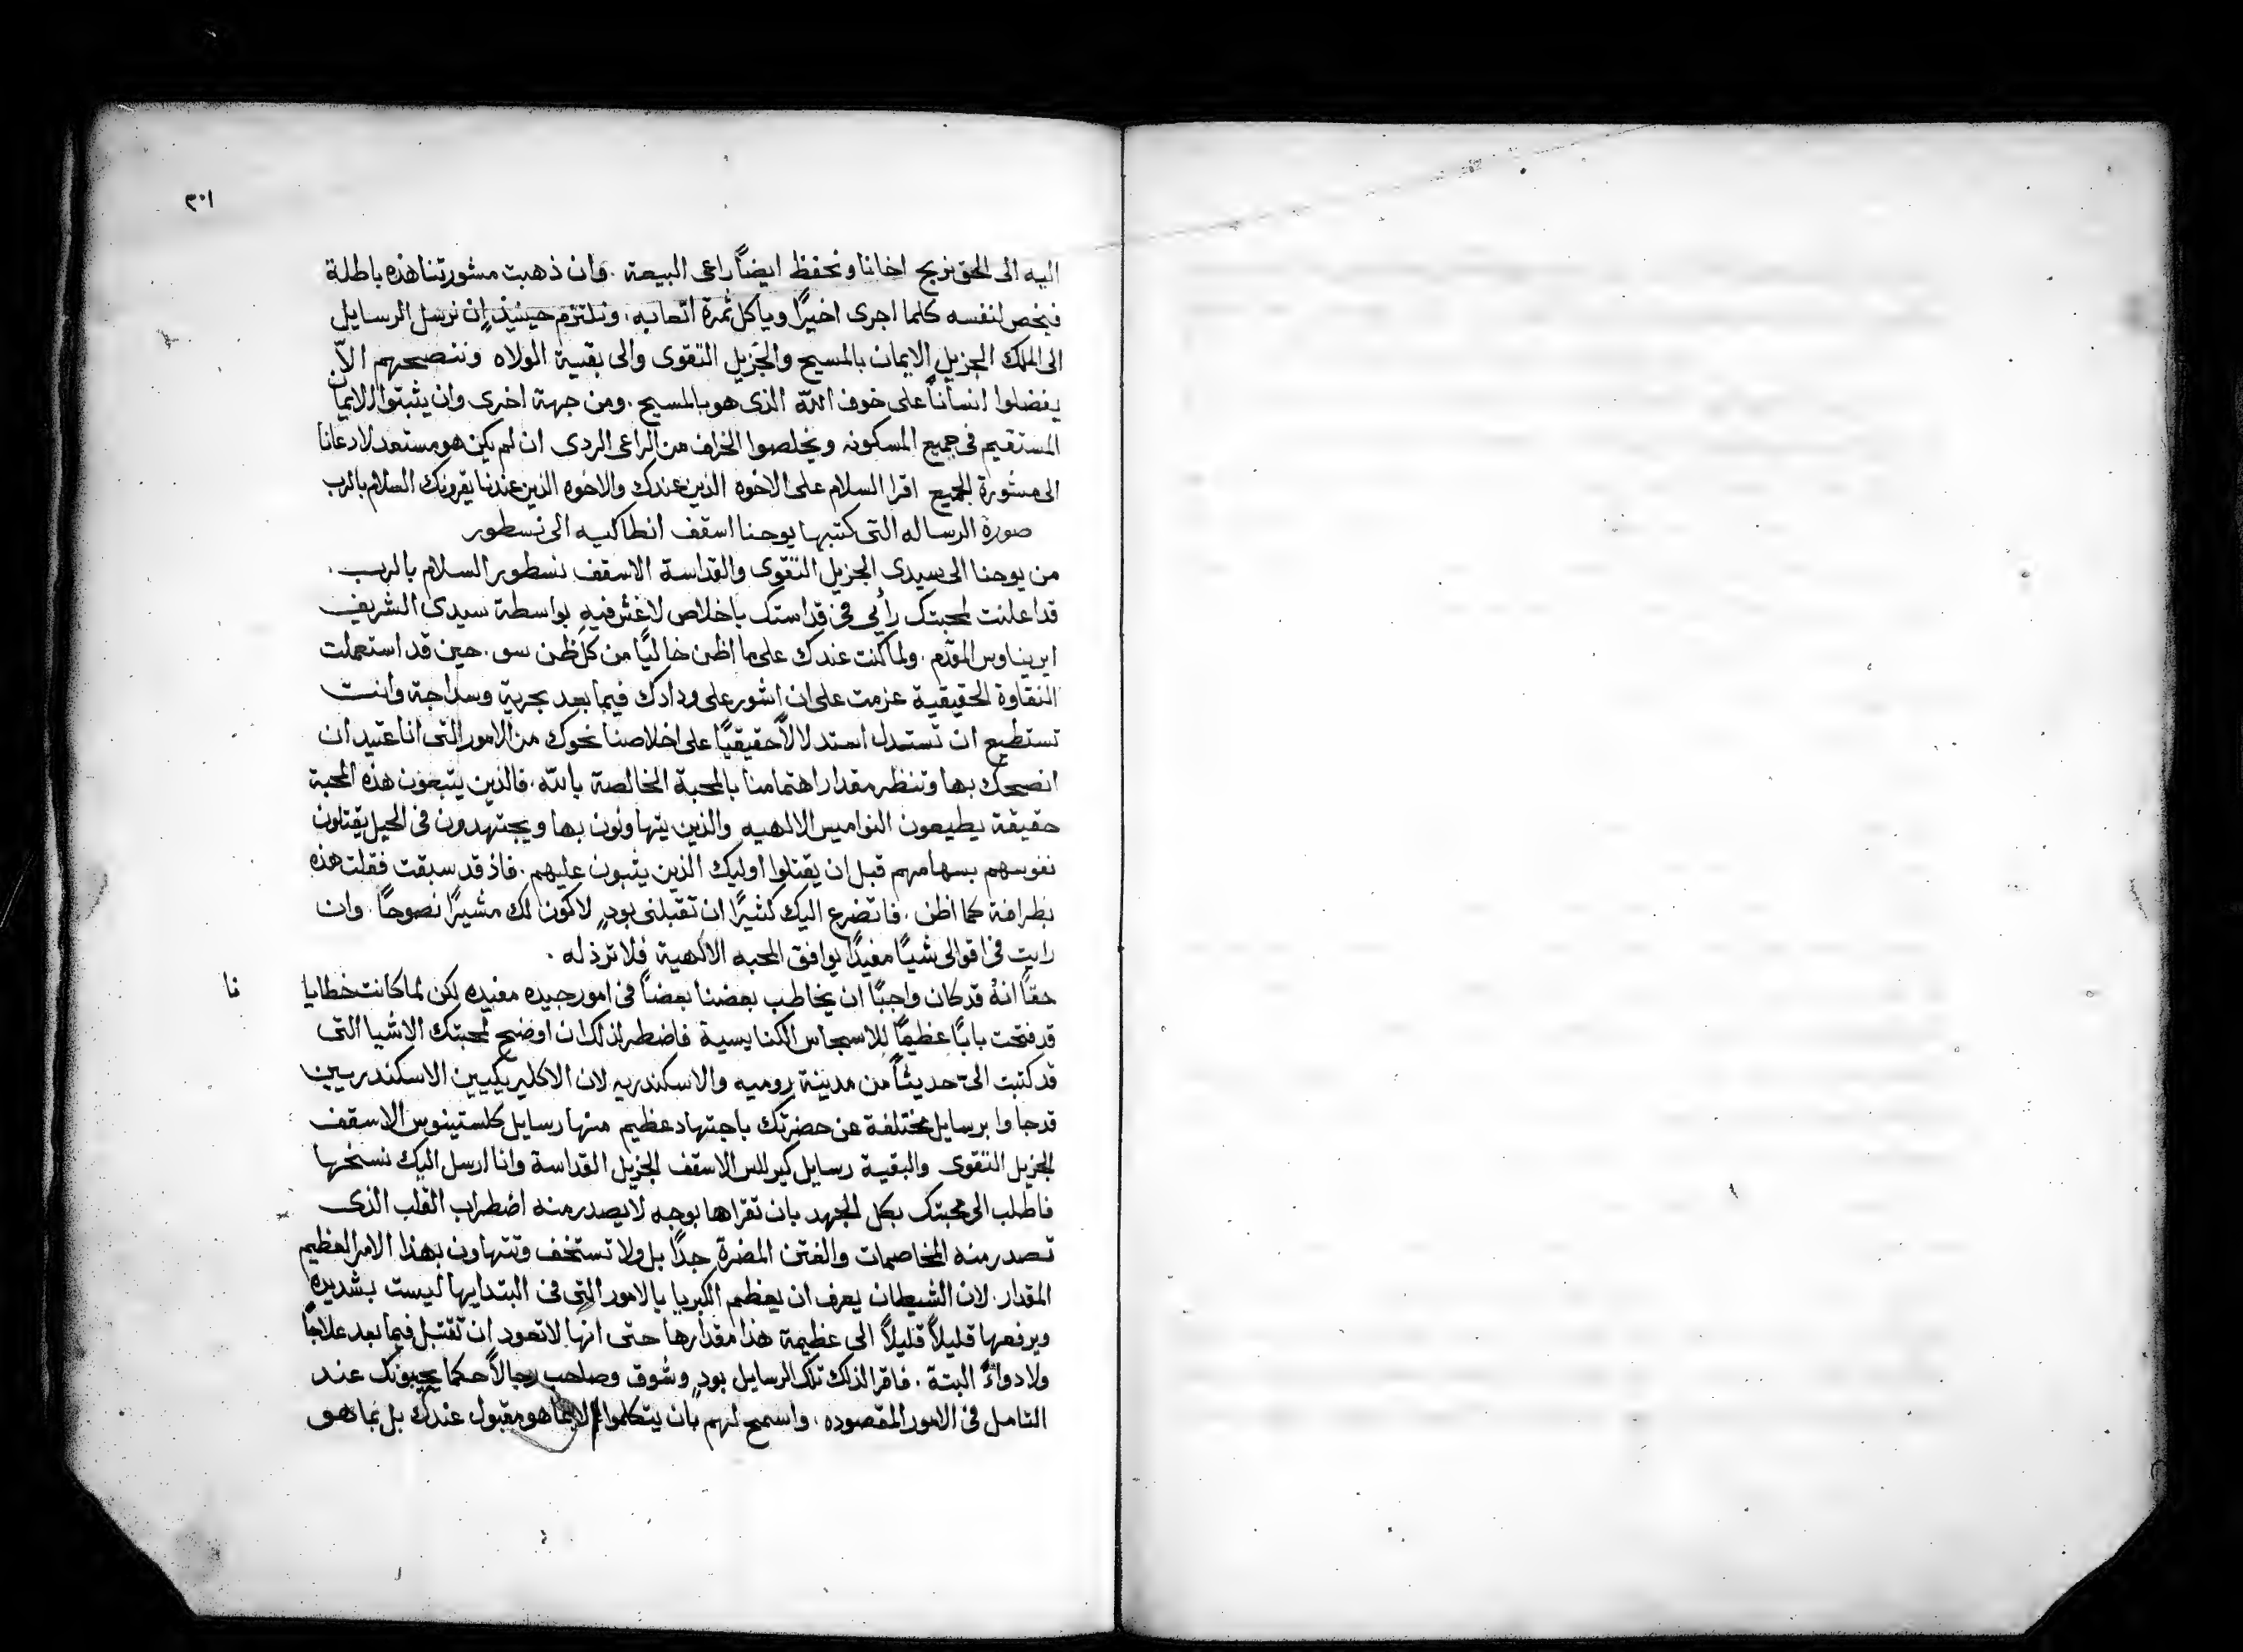 ٣٠١
اليه الى الحق نربح اخانا ونحفظ ايضاً راعى البيعة . وان ذهبت مشورتنا هذه باطلة
فيخص لنفسه كلما اجرى اخيرًا وياكل ثمرة اتعابه . ونلتزم حينيذٍ ان نرسل الرسايل
الى الملك الجزيل الايمان بالمسيح والجزيل التقوى والى بقية الولاه وننصحهم الاّ
يفضلوا انساناً على خوف اللّه الذى هو بالمسيح . ومن جهة اخرى وان يثبتوا الايمان
المستقيم فى جميع المسكونه ويخلصوا الخراف من الراعى الردى ان لم يكن هو مستعد لادعانا
الى مشورة الجميع اقرا السلام على الاخوه الذين عندك والاخوه الذين عندنا يقرونك السلام بالرب
صورة الرساله التى كتبها يوحنا اسقف انطاكيه الى نسطور
من يوحنا الى سيدى الجزيل التقوى والقداسة الاسقف نسطور السلام بالرب .
قد اعلنت لمحبتك رأيى فى قداستك باخلاص لا غش فيهِ بواسطة سيدى الشريف
ايريناوس المقدّم . ولما كنت عندك على ما اظن خاليًا من كل ظن سو . حين قد استعملت
النقاوة الحقيقية عزمت على ان اشور على ودادك فيما بعد بحرية وسداجة وانت
تستطيع ان تستدل استدلالاً حقيقيًا على اخلاصنا نحوك من الامور التى انا عتيد ان
انصحك بها وتنظر مقدار اهتمامنا بالمحبة الخالصة باللّه . فالذين يتبعون هذه المحبة
حقيقة يطيعون النواميس الالهيه والذين يتهاونون بها ويجتهدون فى الحيل يقتلون
نفوسهم بسهامهم قبل ان يقتلوا اوليك الذين يثبون عليهم . فاذ قد سبقت فقلت هذه
بطرافة كما اظن . فاتضرع اليك كثيرًا ان تقبلنى بودٍ لاكون لك مشيرًا نصوحًا . وان
رايت فى اقوالى شيًا مفيدًا يوافق المحبه الالهية فلا ترذله .
حقاً انهُ قد كان واجبًا ان يخاطب بعضنا بعضاً فى امور جيده مفيده لكن لما كانت خطايا
نا
قد فتحت بابًا عظيمًا للاسجاس الكنايسية فاضطر لذلك ان اوضح لمحبتك الاشيا التى
قد كتبت الىّ حديثاً من مدينة روميه والاسكندريه لان الاكليريكيين الاسكندريين
قد جاوا برسايل مختلفة عن حضرتك باجتهاد عظيم منها رسايل كلستينوس الاسقف
الجزيل التقوى والبقية رسايل كيرللس الاسقف الجزيل القداسة وانا ارسل اليك نسخها
فاطلب الى محبتك بكل الجهد بان تقراها بوجه لا يصدر منه اضطراب القلب الذى
تصدر منه المخاصمات والفتن المضرة جدًا بل ولا تستخف وتتهاون بهذا الامر العظيم
المقدار . لان الشيطان يعرف ان يعظم الكبريا بالامور التى فى ابتدايها ليست بشديده
ويرفعها قليلاً قليلاً الى عظيمة هذا مقدارها حتى انها لا تعود ان تقتبل فيما بعد علاجاً
ولا دواءً البتة . فاقرا لذلك تلك الرسايل بودٍ وشوق وصاحب رجالاً حكما يحبونك عند
التامل فى الامور المقصوده . واسمح لهم بان يتكلموا لا بما هو مقبول عندك بل بما هو